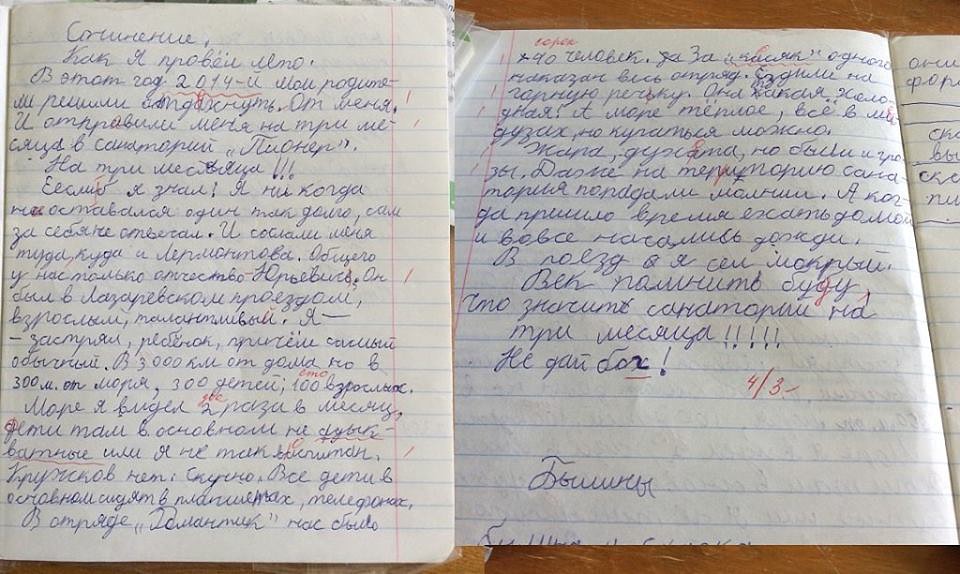 Сочинение.
Как я провёл лето.
В этот год 2014-й мои родите-
ли решили отдохнуть. От меня.
И отправили меня на три ме-
сяца в санаторий „Пионер".
На три месяца!!!
Еслиб я знал! Я ни когда
не оставался один так долго, сам
за себя не отвечал. И сослали меня
туда, куда и Лермонтова. Общего
у нас только отчество-Юрьевич. Он
был в Лазаревском проездом,
взрослый, талантливый. Я —
- застрял, ребёнок, причём самый
обычный. В 3000 км от дома но в
300 м. от моря, 300 детей; 100 взрослых.
сто
две
Море я видел 2 раза в месяц,
дети там в основном не адык-
ватные или я не так воспитан.
Кружков нет. Скучно. Все дети в
основном сидят в планшетах, телефонах.
В отряде „Романтик" нас было
сорок
40 человек. За „касяк" одного
наказан весь отряд. Ездили на
горную речку. Она такая холо-
дная! А море тёплое, всё в ме
дузах, но купаться можно.
Жара, духата, но были и гро-
зы. Даже на территорию сана-
тория попадали молнии. А ког-
да пришло время ехать домой
и вовсе начались дожди.
В поезд я сел мокрый.
Век помнить буду,
что значить санаторий на
три месяца!!!!!!
Не дай бох!
4/3-
Былины
они
фор
ска
вы
ске
пи